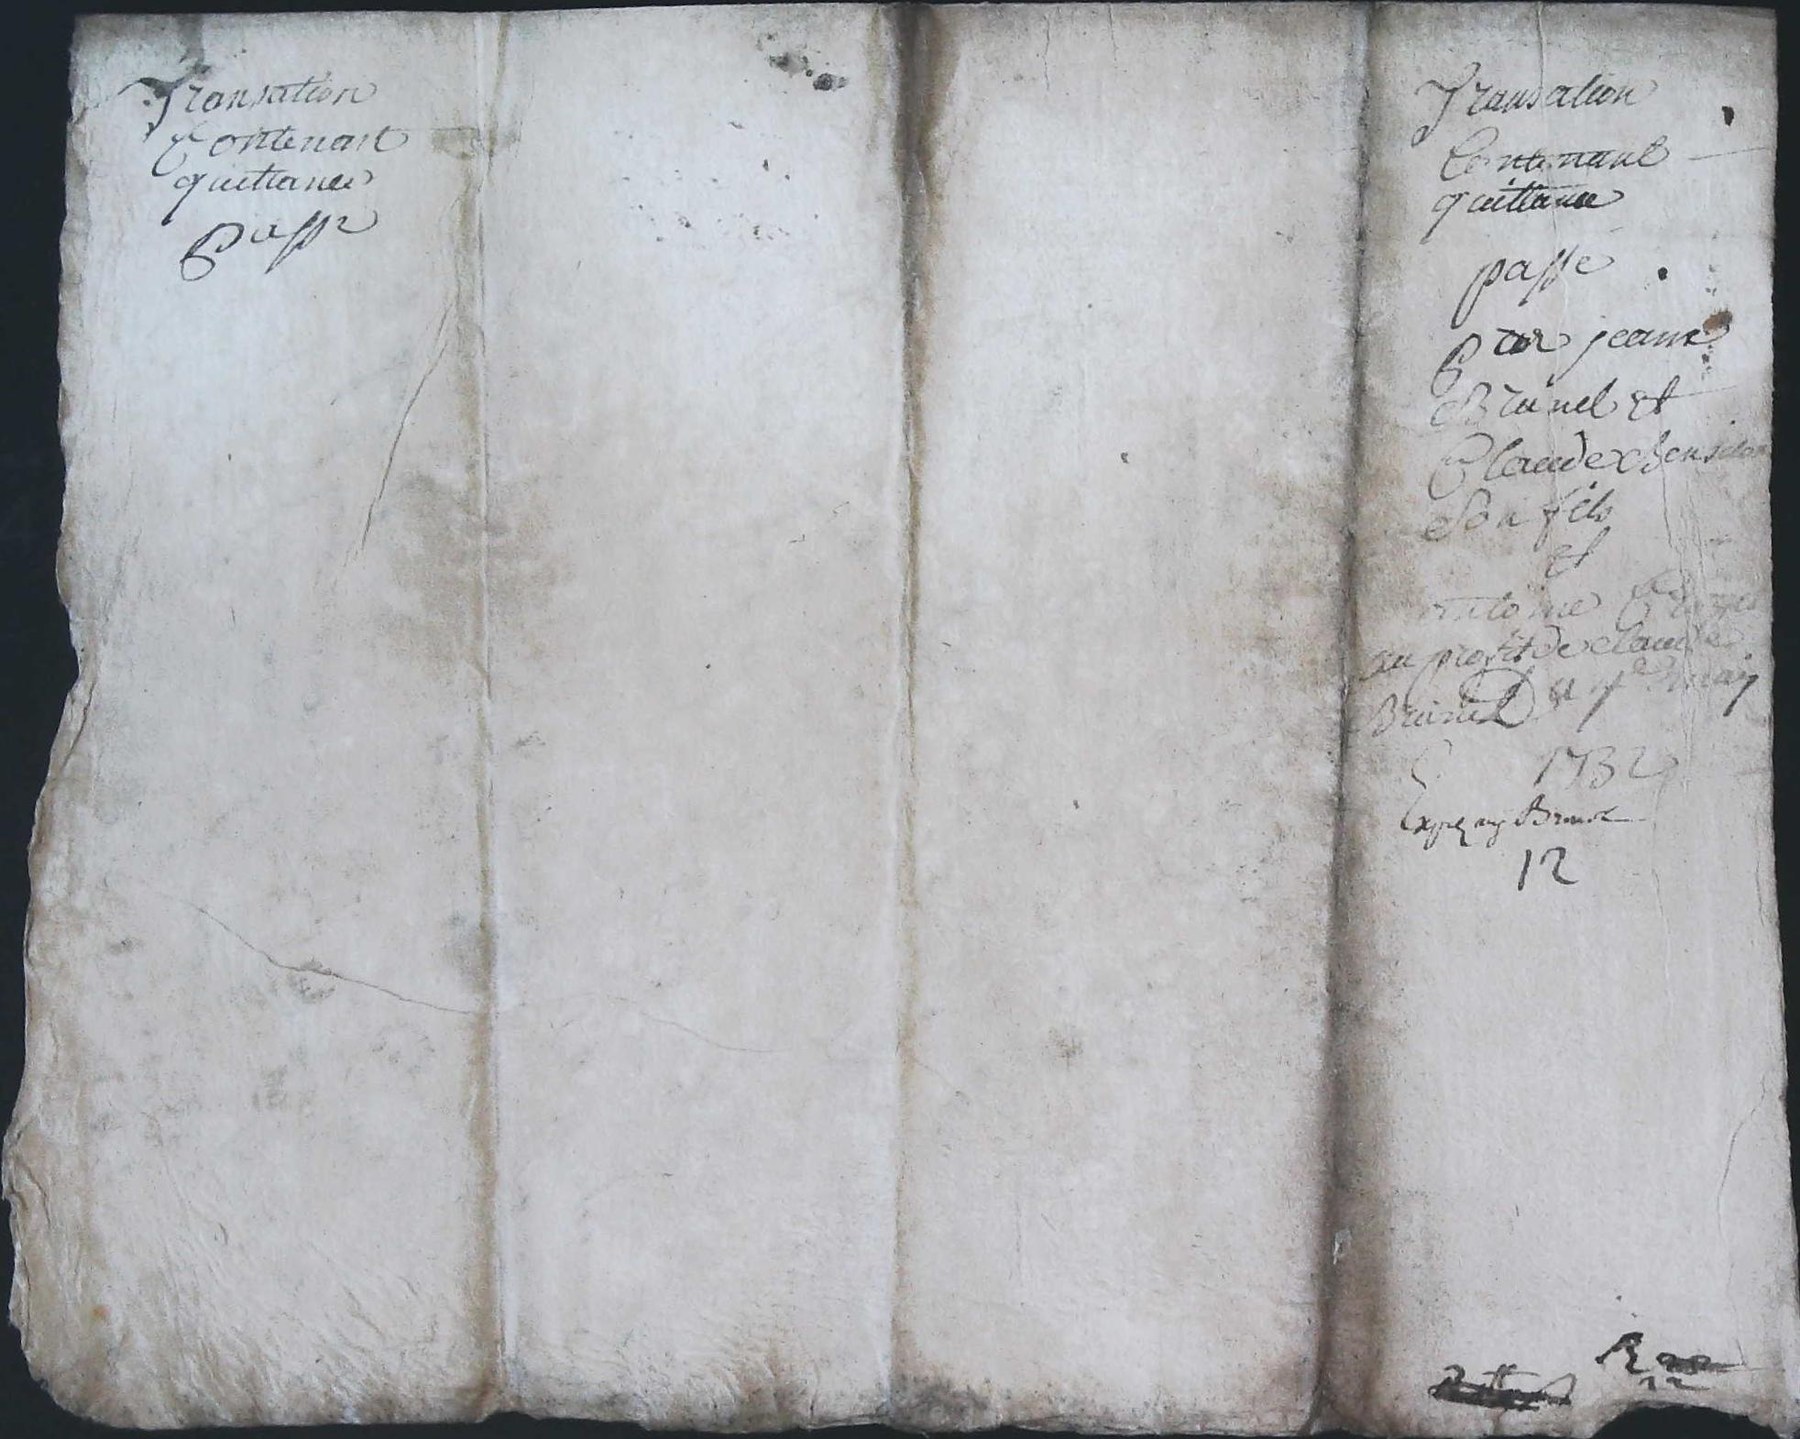 Transation
Contenant
quittance
Passe
Transation
Contenant
quittance
passe
Par jeanne
Brunel et
Claude
Son fils
et
antoine
au profit de claude
Brunel Du 4e may
1732
12
12